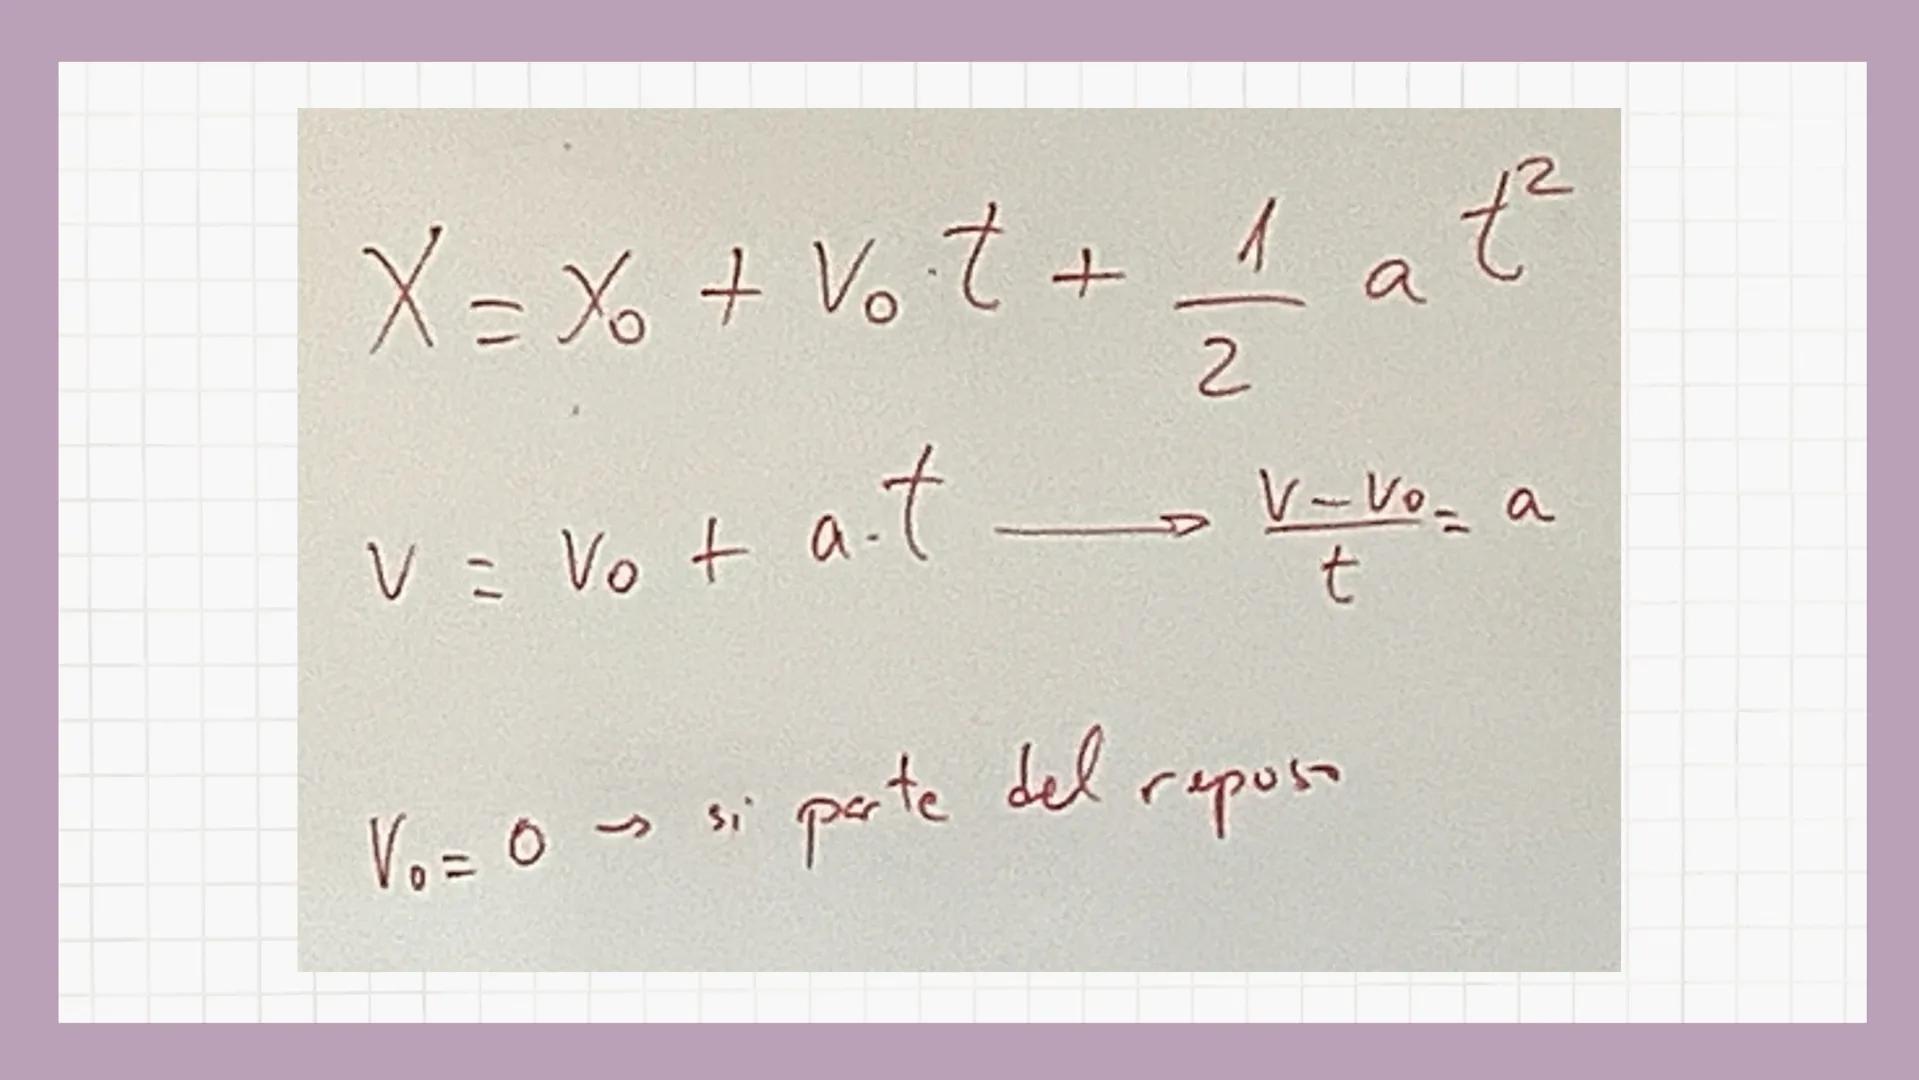 X = X₀ + V₀ · t + 1/2 a t²
V = V₀ + a · t ⟶ (V − V₀)/t = a
V₀ = 0 → si parte del reposo